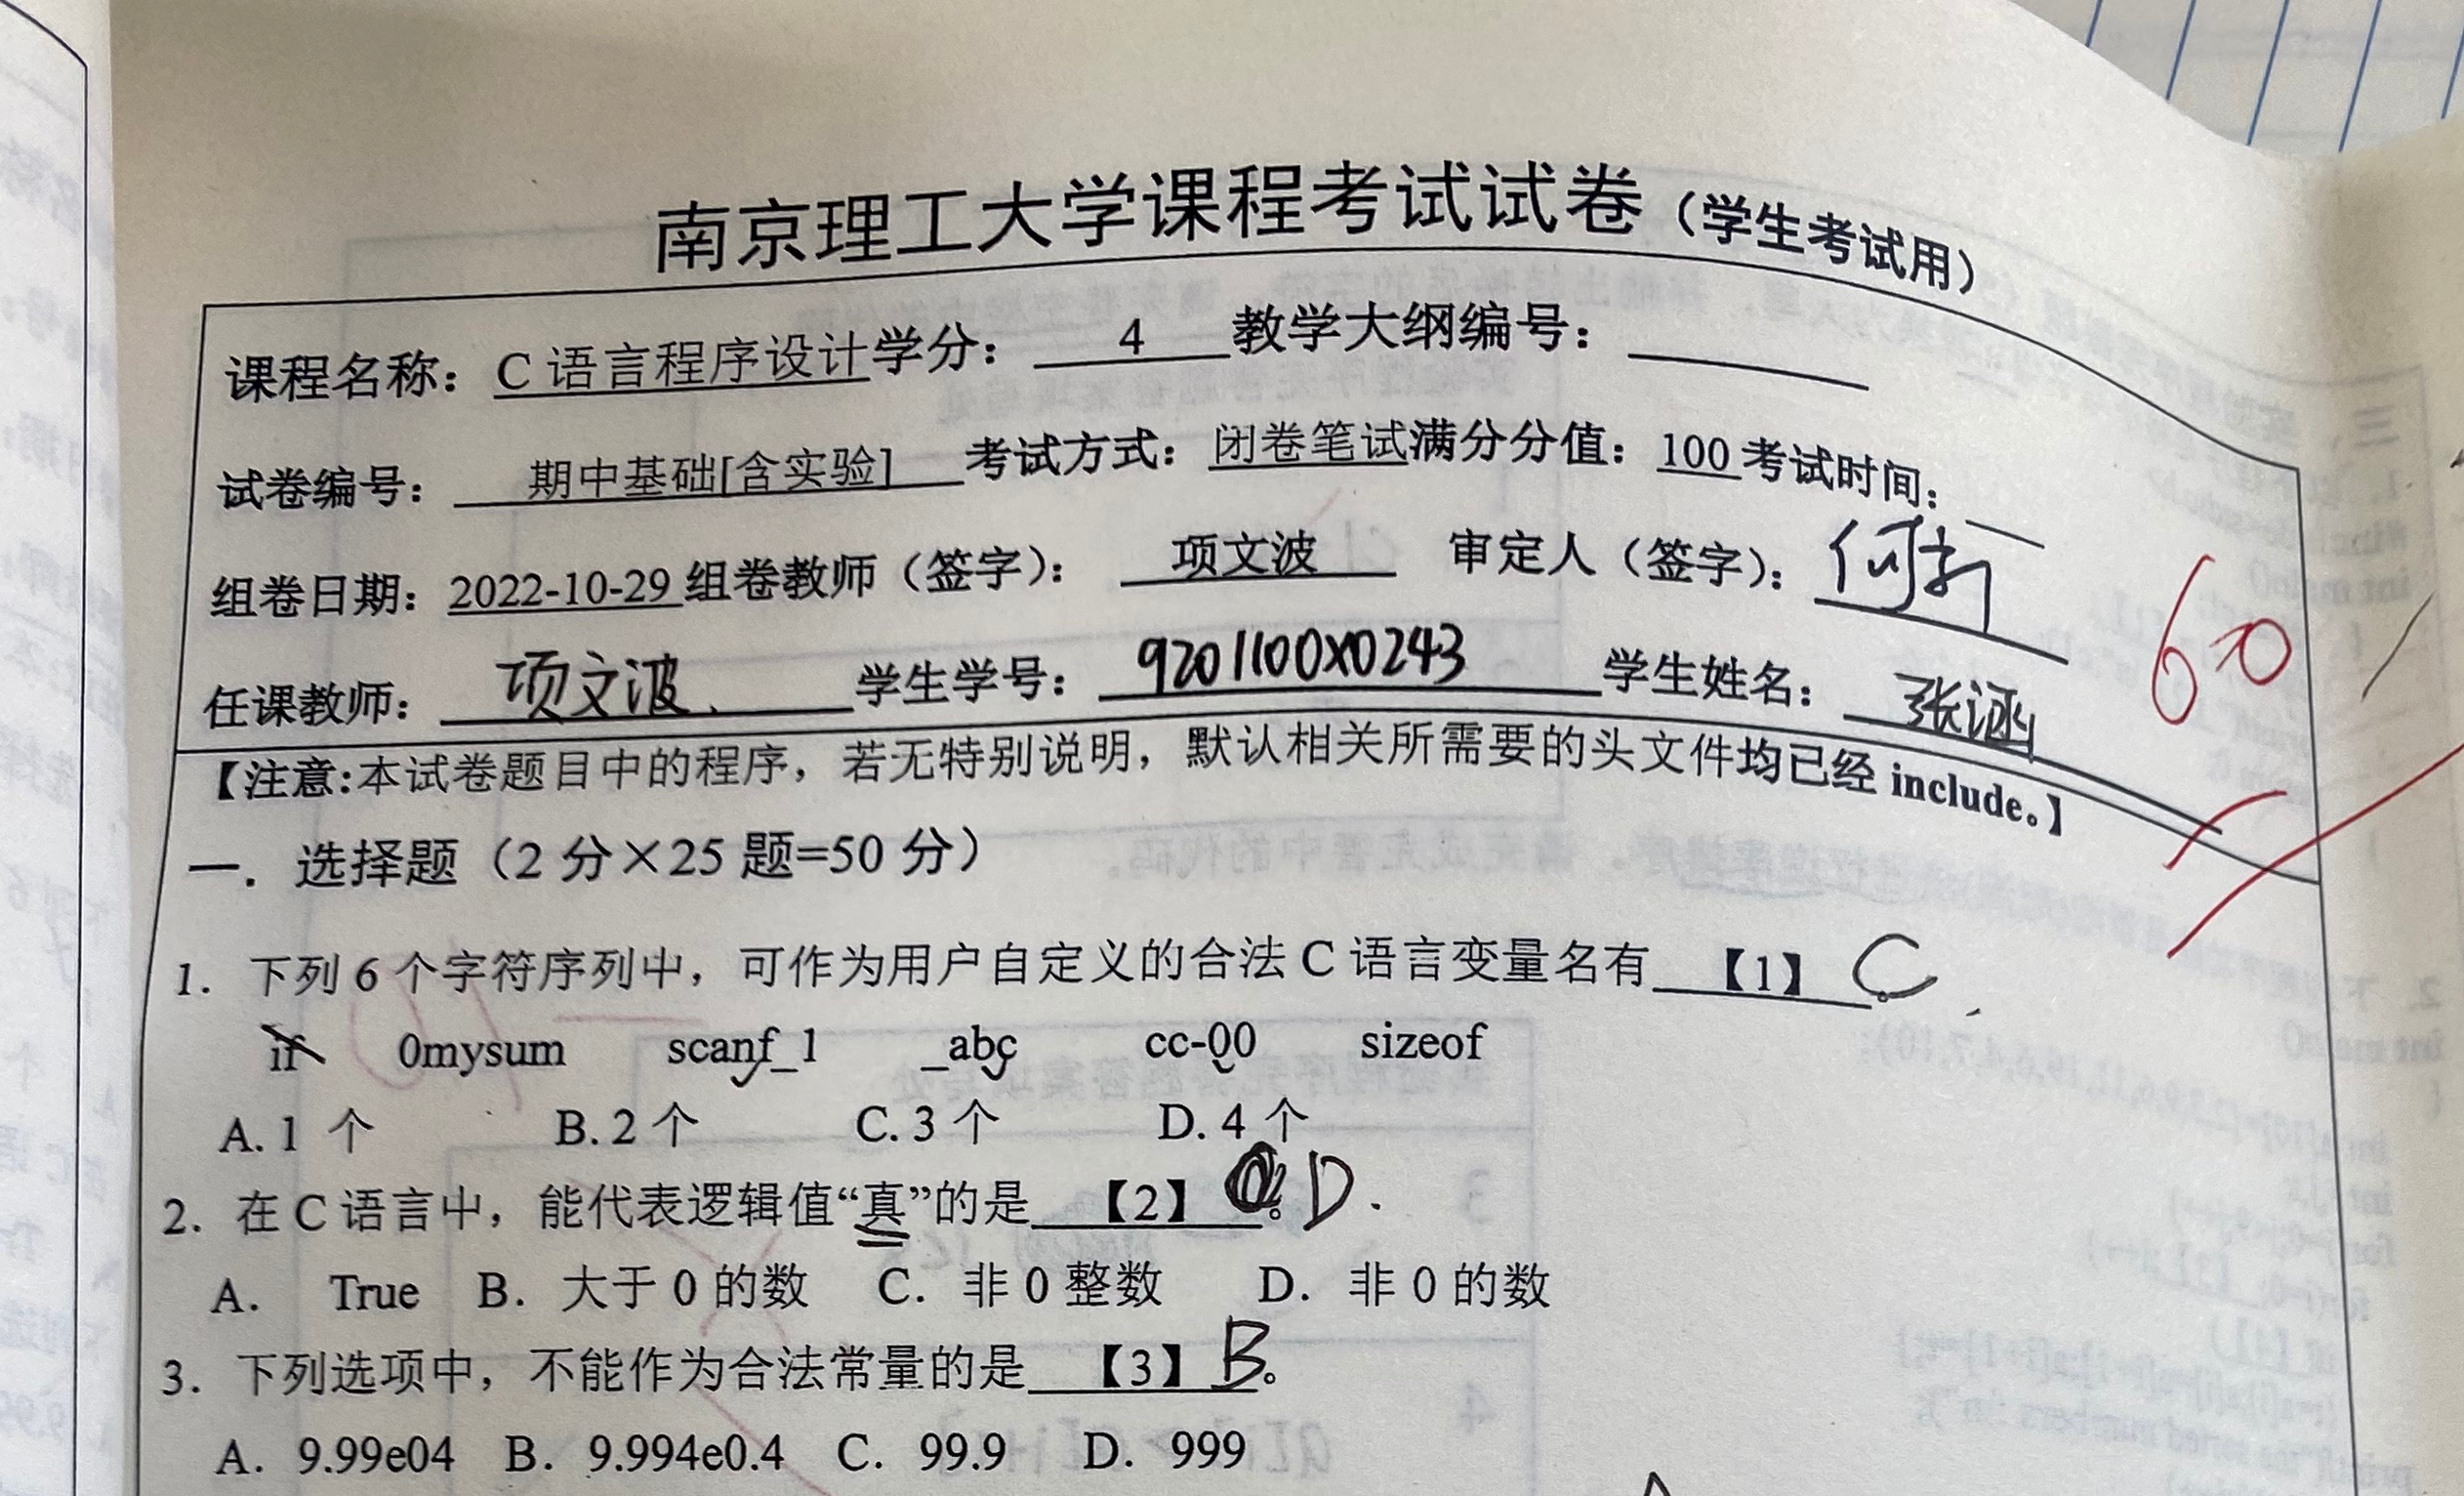 南京理工大学课程考试试卷（学生考试用）
课程名称：C 语言程序设计学分： 4 教学大纲编号：
试卷编号： 期中基础[含实验] 考试方式：闭卷笔试满分分值：100考试时间：
组卷日期：2022-10-29组卷教师（签字）： 项文波 审定人（签字）：何新
60
任课教师： 项文波. 学生学号： 9201100X0243 学生姓名： 张涵
【注意:本试卷题目中的程序，若无特别说明，默认相关所需要的头文件均已经 include。】
一．选择题（2 分×25 题=50 分）
1. 下列 6 个字符序列中，可作为用户自定义的合法 C 语言变量名有 【1】 C。
if 0mysum scanf_1 _abc cc-00 sizeof
A. 1 个 B. 2 个 C. 3 个 D. 4 个
2. 在 C 语言中，能代表逻辑值“真”的是 【2】 。D.
A. True B. 大于 0 的数 C. 非 0 整数 D. 非 0 的数
3. 下列选项中，不能作为合法常量的是 【3】 B。
A. 9.99e04 B. 9.994e0.4 C. 99.9 D. 999